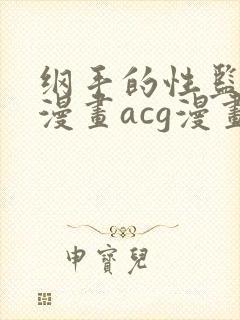 纲手的性监
漫畫acg漫畫
申寶兒